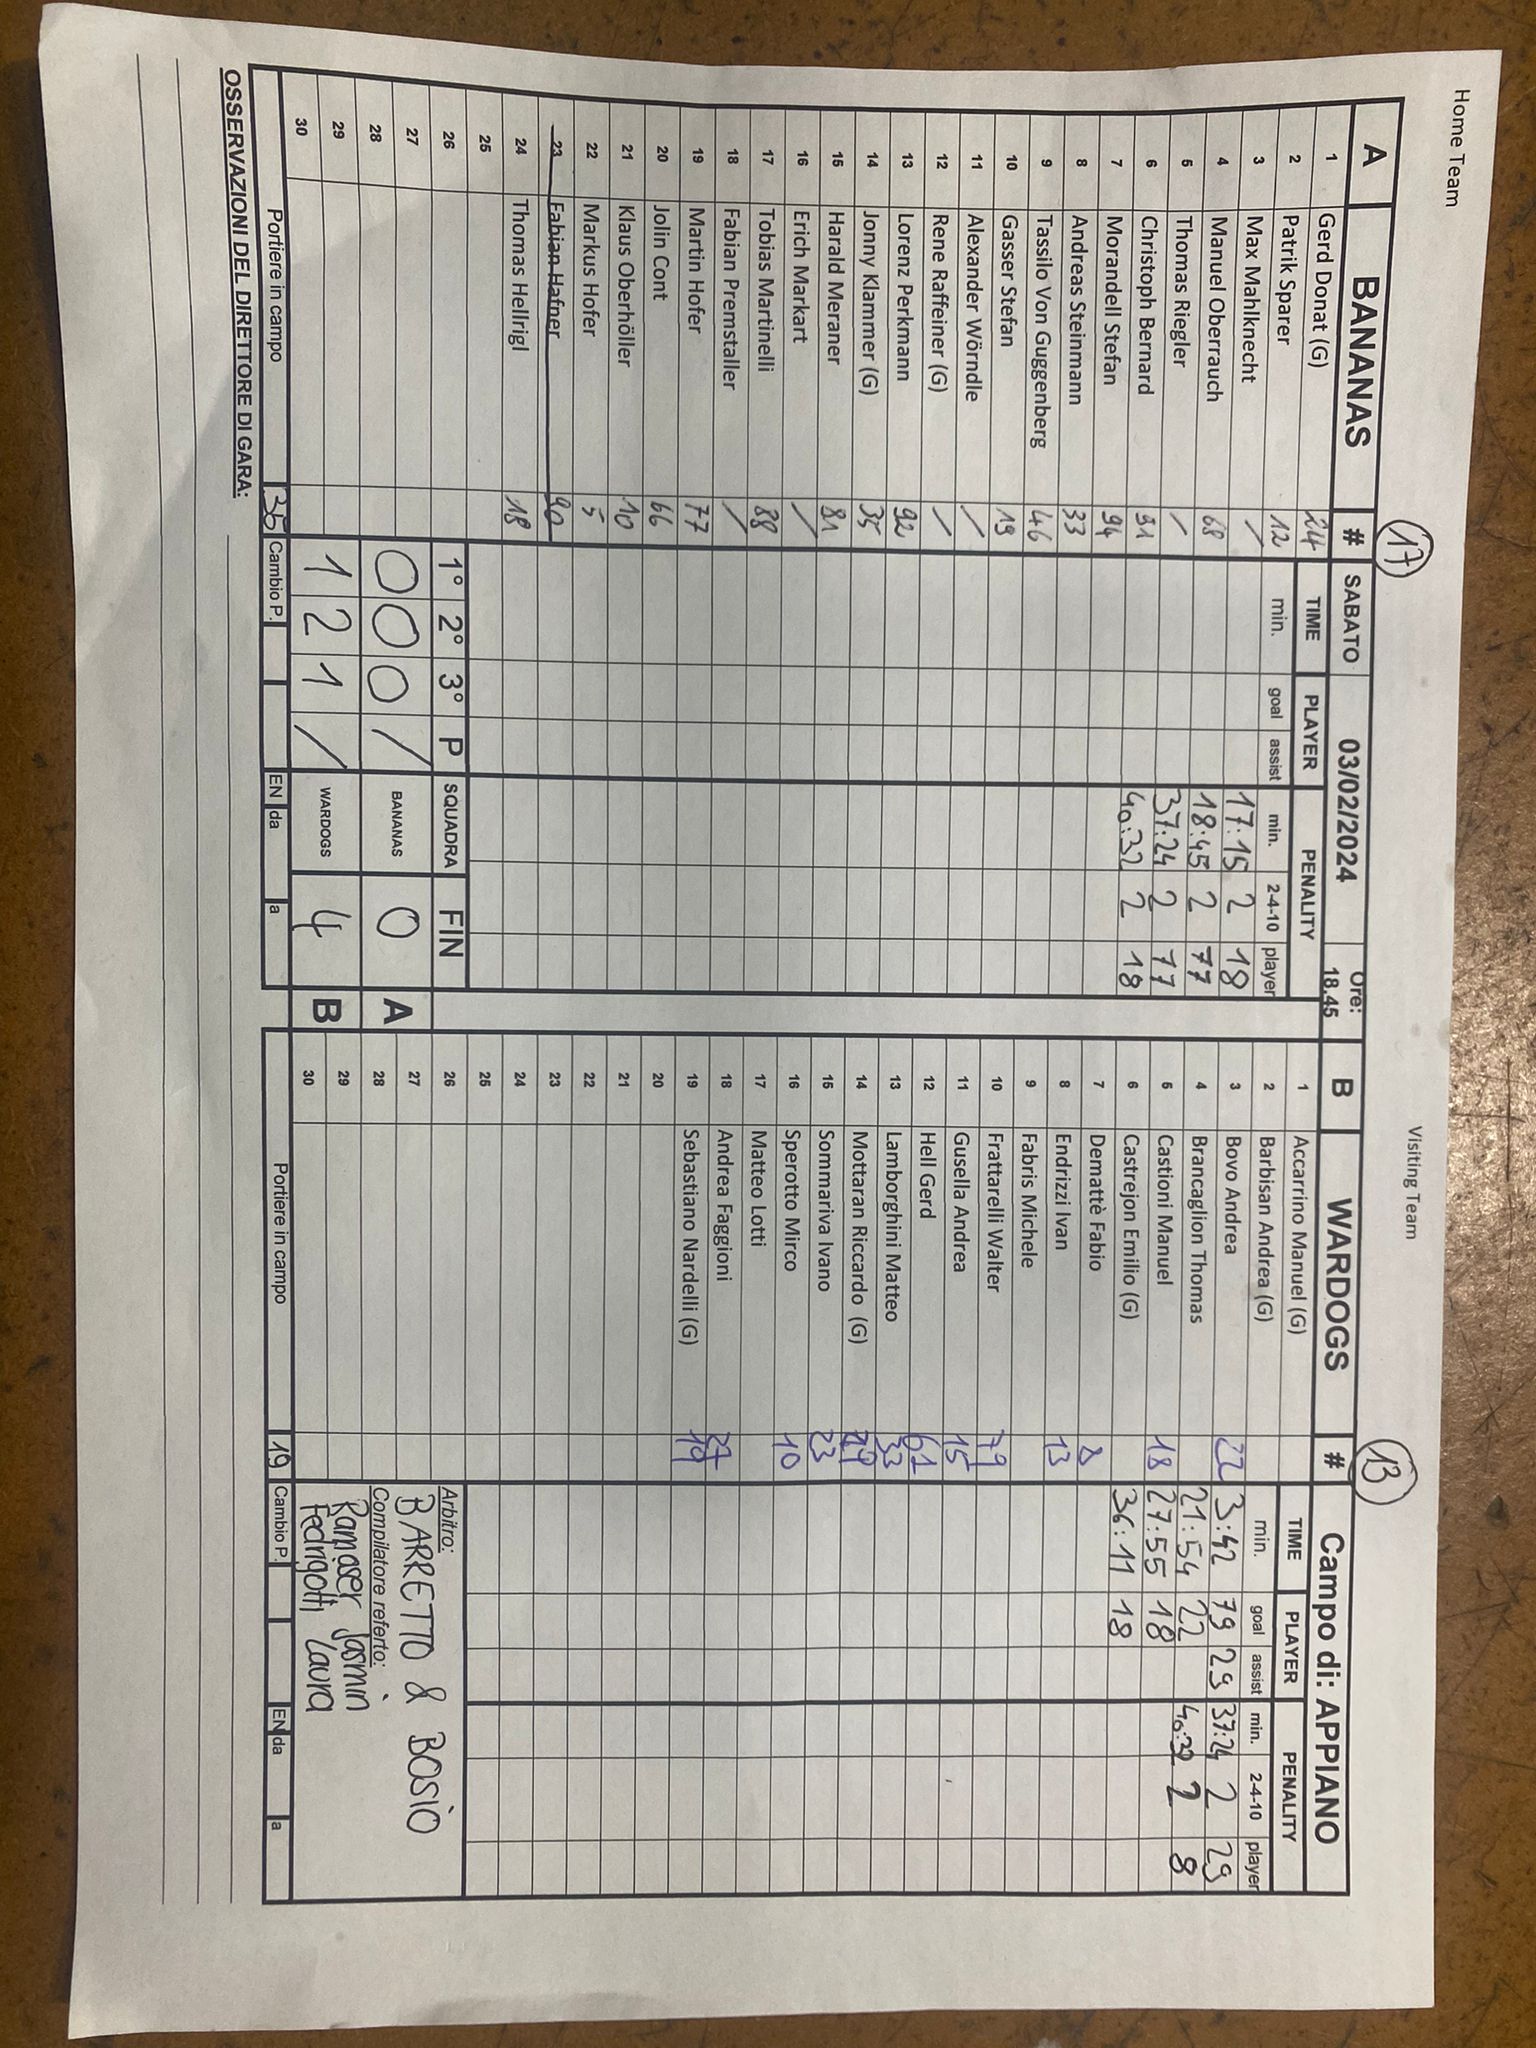 Home Team
Visiting Team
17
13
A BANANAS # SABATO 03/02/2024 Ore: 18.45 B WARDOGS # Campo di: APPIANO
TIME PLAYER PENALITY TIME PLAYER PENALITY
min. goal assist min. 2-4-10 player min. goal assist min. 2-4-10 player
1 Gerd Donat (G) 1 Accarrino Manuel (G)
2 Patrik Sparer 12 2 Barbisan Andrea (G)
3 Max Mahlknecht / 17:15 2 18 3 Bovo Andrea 22 3:42 79 29 37:24 2 29
4 Manuel Oberrauch 68 18:45 2 77 4 Brancaglion Thomas 21:54 22 40:32 2 8
5 Thomas Riegler / 37:24 2 77 5 Castioni Manuel 18 27:55 18
6 Christoph Bernard 91 40:32 2 18 6 Castrejon Emilio (G) 36:11 18
7 Morandell Stefan 94 7 Demattè Fabio 8
8 Andreas Steinmann 33 8 Endrizzi Ivan 13
9 Tassilo Von Guggenberg 46 9 Fabris Michele
10 Gasser Stefan 19 10 Frattarelli Walter 79
11 Alexander Wörndle / 11 Gusella Andrea 15
12 Rene Raffeiner (G) / 12 Hell Gerd 61
13 Lorenz Perkmann 92 13 Lamborghini Matteo 33
14 Jonny Klammer (G) 35 14 Mottaran Riccardo (G)
15 Harald Meraner 81 15 Sommariva Ivano 23
16 Erich Markart / 16 Sperotto Mirco 10
17 Tobias Martinelli 88 17 Matteo Lotti
18 Fabian Premstaller / 18 Andrea Faggioni
19 Martin Hofer 77 19 Sebastiano Nardelli (G) 19
20 Jolin Cont 66 20
21 Klaus Oberhöller 10 21
22 Markus Hofer 5 22
23 Fabian Hafner 90 23
24 Thomas Hellrigl 18 24
25 25
26 1° 2° 3° P SQUADRA FIN 26 Arbitro:
27 0 0 0 / BANANAS 0 A 27 BARRETTO & BOSIO
28 28 Compilatore referto:
29 1 2 1 / WARDOGS 4 B 29 Ramoser Jasmin
30 30 Fedrigotti Laura
Portiere in campo 35 Cambio P. EN da a Portiere in campo 19 Cambio P. EN da a
OSSERVAZIONI DEL DIRETTORE DI GARA: